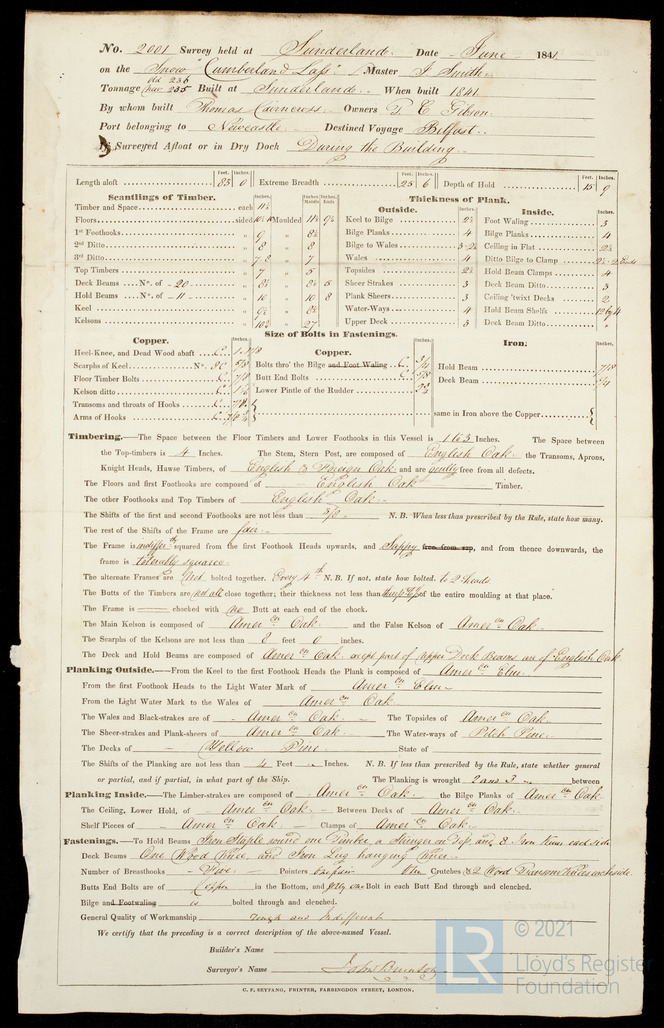 No. 2001 Survey held at Sunderland. Date June 1841
on the Snow "Cumberland Lass" Master J Smith.
Tonnage old 236 new 235 Built at Sunderland. When built 1841.
By whom built Thomas Cairncross. Owners T. C Gibson.
Port belonging to Newcastle. Destined Voyage Belfast.
If Surveyed Afloat or in Dry Dock During the Building.
Length aloft 85 0 Extreme Breadth 25 6 Depth of Hold 15 9
Feet. Inches. Feet. Inches. Feet. Inches.
Scantlings of Timber.
Timber and Space each 11½
Floors sided Moulded 11½ 9½
1st Foothooks „ 9 „ 8½
2nd Ditto „ 8 „ 8
3rd Ditto „ 7 8 „ 7
Top Timbers „ 7 „ 5
Deck Beams No. of 20
Hold Beams No. of 11 „ 10 „ 10 8
Keel
Kelsons „ 27
Thickness of Plank.
Outside.
Keel to Bilge 2½
Bilge Planks 4
Bilge to Wales 3-2½
Wales 4
Topsides 2½
Sheer Strakes 3
Plank Sheers 3
Water-Ways 4
Upper Deck 3
Inside.
Foot Waling 3
Bilge Planks 4
Ceiling in Flat 2½
Ditto Bilge to Clamp 2½ - 2 Ends
Hold Beam Clamps 4
Deck Beam Ditto 3
Ceiling 'twixt Decks 2
Hold Beam Shelfs 12 by 4
Deck Beam Ditto „
Size of Bolts in Fastenings.
Copper.
Heel-Knee, and Dead Wood abaft C. 1 1/8
Scarphs of Keel No. 8 C 5/8
Floor Timber Bolts C. 7/8
Kelson ditto C.
Transoms and throats of Hooks C. 7/8
Arms of Hooks C.
Copper.
Bolts thro' the Bilge and Foot Waling C. 3/4
Butt End Bolts C. 5/8
Lower Pintle of the Rudder
Iron.
Hold Beam 7/8
Deck Beam 3/4
same in Iron above the Copper
Timbering.—The Space between the Floor Timbers and Lower Foothooks in this Vessel is 1 to 3 Inches. The Space between
the Top-timbers is 4 Inches. The Stem, Stern Post, are composed of English Oak the Transoms, Aprons,
Knight Heads, Hawse Timbers, of English & Foreign Oak and are mostly free from all defects.
The Floors and first Foothooks are composed of English Oak Timber.
The other Foothooks and Top Timbers of English Oak.
The Shifts of the first and second Foothooks are not less than N. B. When less than prescribed by the Rule, state how many.
The rest of the Shifts of the Frame are fair.
The Frame is squared from the first Foothook Heads upwards, and Sappy free from sap, and from thence downwards, the
frame is tolerably square.
The alternate Frames are Not bolted together. Every 4th N. B. If not, state how bolted. to 2 heads
The Butts of the Timbers are not all close together; their thickness not less than of the entire moulding at that place.
The Frame is chocked with no Butt at each end of the chock.
The Main Kelson is composed of Amercn Oak and the False Kelson of Amercn Oak.
The Scarphs of the Kelsons are not less than 8 feet 0 inches.
The Deck and Hold Beams are composed of Amercn Oak. except part of upper Deck Beams are of English Oak
Planking Outside.—From the Keel to the first Foothook Heads the Plank is composed of Amercn Elm.
From the first Foothook Heads to the Light Water Mark of Amercn Elm
From the Light Water Mark to the Wales of Amercn Oak.
The Wales and Black-strakes are of Amercn Oak. The Topsides of Amercn Oak.
The Sheer-strakes and Plank-sheers of Amercn Oak The Water-ways of Pitch Pine.
The Decks of Yellow Pine. State of
The Shifts of the Planking are not less than 4 Feet Inches. N. B. If less than prescribed by the Rule, state whether general
or partial, and if partial, in what part of the Ship. The Planking is wrought 2 and 3 between
Planking Inside.—The Limber-strakes are composed of Amercn Oak the Bilge Planks of Amercn Oak
The Ceiling, Lower Hold, of Amercn Oak. Between Decks of Amercn Oak.
Shelf Pieces of Amercn Oak Clamps of Amercn Oak.
Fastenings.—To Hold Beams Iron Staple round one Timber, a Stringer on Top, and 8 Iron Knees each side
Deck Beams One Wood Knee, and Iron Lug hanging Knees.
Number of Breasthooks Five. Pointers One pair One Crutches & 2 Wood Transom Knees each side.
Butts End Bolts are of Copper in the Bottom, and one Bolt in each Butt End through and clenched.
Bilge and Footwaling is bolted through and clenched.
General Quality of Workmanship rough and Indifferent
We certify that the preceding is a correct description of the above-named Vessel.
Builder's Name
Surveyor's Name John Brunton
C. F. SEYFANG, PRINTER, FARRINGDON STREET, LONDON.
LR © 2021
Lloyd's Register
Foundation